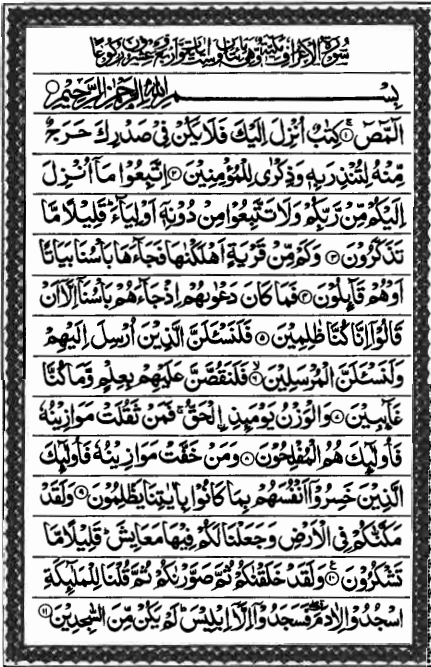 سُوْرَةُ الْاَعْرَافِ مَكِّيَّةٌ وَّهِيَ مِائَتَانِ وَسِتُّ اٰيَاتٍ وَّاَرْبَعٌ وَّعِشْرُوْنَ رُكُوْعًا
بِسْمِ اللّٰهِ الرَّحْمٰنِ الرَّحِيْمِ
الٓمّٓصٓ ۝١ كِتٰبٌ اُنْزِلَ اِلَيْكَ فَلَا يَكُنْ فِيْ صَدْرِكَ حَرَجٌ
مِّنْهُ لِتُنْذِرَ بِهٖ وَذِكْرٰى لِلْمُؤْمِنِيْنَ ۝٢ اِتَّبِعُوْا مَآ اُنْزِلَ
اِلَيْكُمْ مِّنْ رَّبِّكُمْ وَلَا تَتَّبِعُوْا مِنْ دُوْنِهٖٓ اَوْلِيَآءَ ؕ قَلِيْلًا مَّا
تَذَكَّرُوْنَ ۝٣ وَكَمْ مِّنْ قَرْيَةٍ اَهْلَكْنٰهَا فَجَآءَهَا بَاْسُنَا بَيَاتًا
اَوْ هُمْ قَآئِلُوْنَ ۝٤ فَمَا كَانَ دَعْوٰىهُمْ اِذْ جَآءَهُمْ بَاْسُنَآ اِلَّآ اَنْ
قَالُوْٓا اِنَّا كُنَّا ظٰلِمِيْنَ ۝٥ فَلَنَسْئَلَنَّ الَّذِيْنَ اُرْسِلَ اِلَيْهِمْ
وَلَنَسْئَلَنَّ الْمُرْسَلِيْنَ ۝٦ فَلَنَقُصَّنَّ عَلَيْهِمْ بِعِلْمٍ وَّمَا كُنَّا
غَآئِبِيْنَ ۝٧ وَالْوَزْنُ يَوْمَئِذِ ِۨالْحَقُّ ۚ فَمَنْ ثَقُلَتْ مَوَازِيْنُهٗ
فَاُولٰٓئِكَ هُمُ الْمُفْلِحُوْنَ ۝٨ وَمَنْ خَفَّتْ مَوَازِيْنُهٗ فَاُولٰٓئِكَ
الَّذِيْنَ خَسِرُوْٓا اَنْفُسَهُمْ بِمَا كَانُوْا بِاٰيٰتِنَا يَظْلِمُوْنَ ۝٩ وَلَقَدْ
مَكَّنّٰكُمْ فِي الْاَرْضِ وَجَعَلْنَا لَكُمْ فِيْهَا مَعَايِشَ ؕ قَلِيْلًا مَّا
تَشْكُرُوْنَ ۝١٠ وَلَقَدْ خَلَقْنٰكُمْ ثُمَّ صَوَّرْنٰكُمْ ثُمَّ قُلْنَا لِلْمَلٰٓئِكَةِ
اسْجُدُوْا لِاٰدَمَ فَسَجَدُوْٓا اِلَّآ اِبْلِيْسَ ؕ لَمْ يَكُنْ مِّنَ السّٰجِدِيْنَ ۝١١